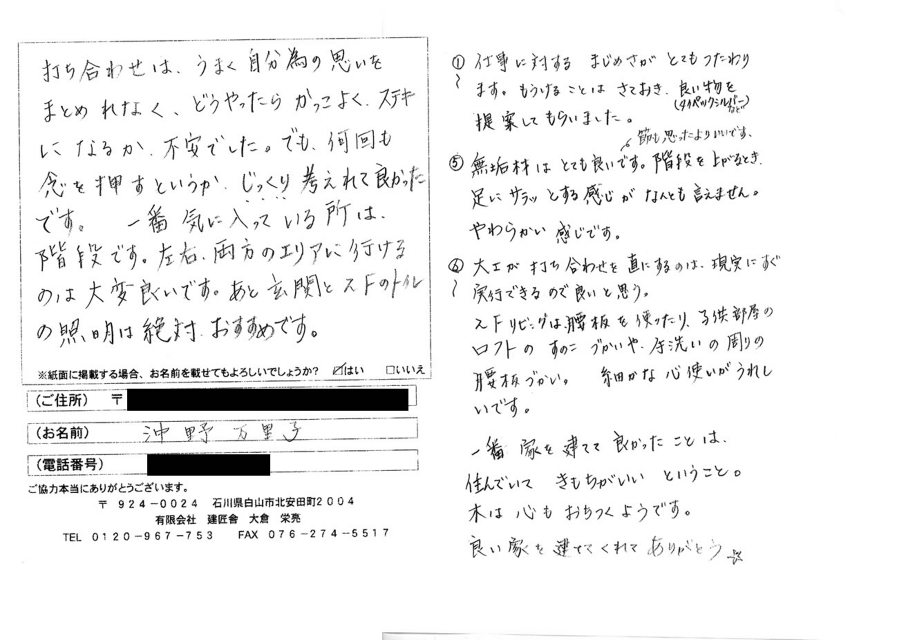 打ち合わせは、うまく自分為の思いを
まとめれなく、どうやったらかっこよく、ステキ
になるか、不安でした。でも、何回も
念を押すというか、じっくり考えれて良かった
です。 一番気に入っている所は、
階段です。左右、両方のエリアに行ける
のは大変良いです。あと玄関と2Fのトイレ
の照明は絶対、おすすめです。
※紙面に掲載する場合、お名前を載せてもよろしいでしょうか? ☑はい □いいえ
(ご住所) 〒
(お名前) 沖野 万里子
(電話番号)
ご協力本当にありがとうございます。
〒 924-0024 石川県白山市北安田町2004
有限会社 建匠舎 大倉 栄亮
TEL 0120-967-753 FAX 076-274-5517
① 仕事に対する まじめさが とてもつたわり
ます。もうけることは さておき、良い物を
(タイベックシルバーなど)
提案してもらいました。
節も思ったよりいいです、
⑤ 無垢材はとても良いです。階段を上がるとき、
足にサラッとする感じが なんとも言えません。
やわらかい 感じです。
⑥ 大工が打ち合わせを直にするのは、現実にすぐ
実行できるので良いと思う。
2Fリビングは腰板を使ったり、子供部屋の
ロフトの すのこ づかいや、手洗いの周りの
腰板づかい。 細かな心使いがうれし
いです。
一番 家を建てて良かったことは、
住んでいて きもちがいい ということ。
木は 心も おちつくようです。
良い家を建ててくれて ありがとう☆